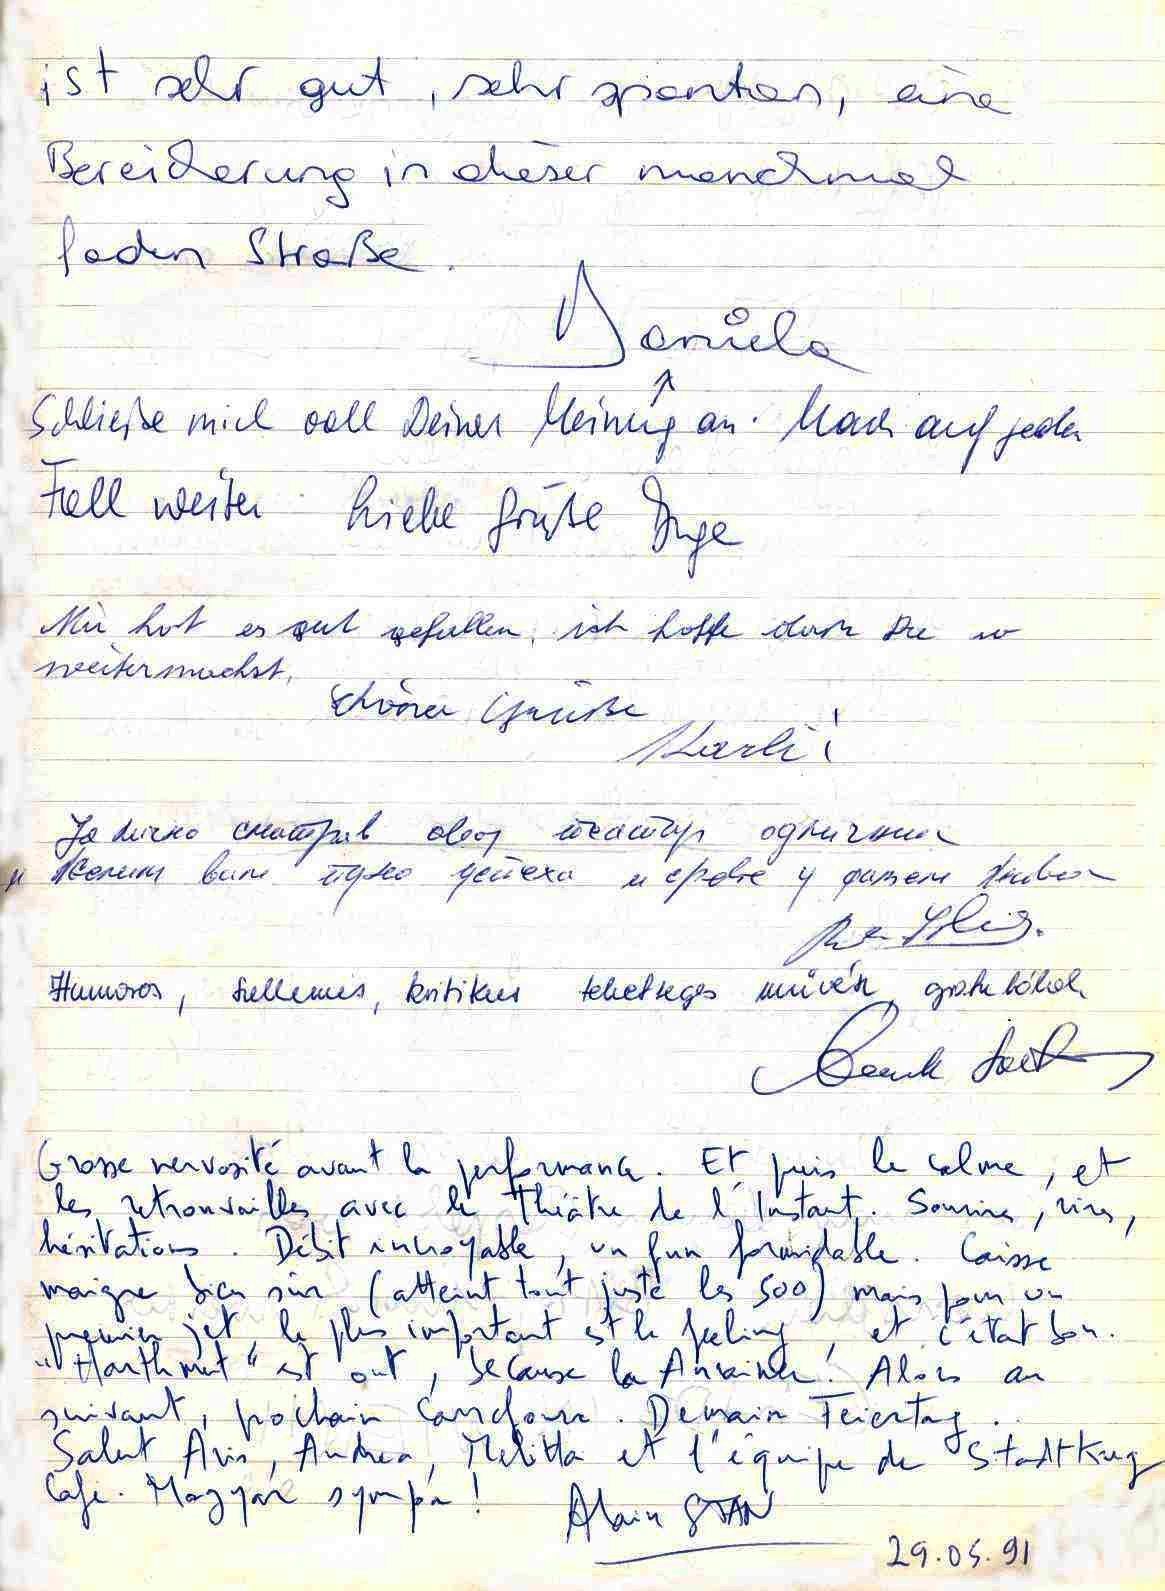 ist sehr gut, sehr spontan, eine
Bereicherung in dieser manchmal
faden Straße.
Daniela
Schließe mich voll Deiner Meinung an. Mach auf jeden
Fall weiter Liebe Grüße Inge
Mir hat es gut gefallen, ich hoffe dass Du so
weitermachst.
Schöne Grüße
Karli!
Ја лично сматрам овој театар одличним
и желим вам пуно успеха и среће у
Humoros, szellemes, kritikus tehetséges művész, gratulálok
Grosse nervosité avant la performance. Et puis le calme, et
les retrouvailles avec le Théâtre de l'Instant. Sourires, rires,
hésitations. Débit incroyable, un fun formidable. Caisse
maigre bien sûr (atteint tout juste les 500) mais pour un
premier jet, le plus important est le feeling, et c'était bon.
"Harthmut" est out, because la Anrainer! Alors au
suivant, prochain carrefour. Demain Feiertag.
Salut Avis, Andrea, Melitta et l'équipe de Stadtkrug
Café. Magyar sympa!
Alain STAN
29.05.91